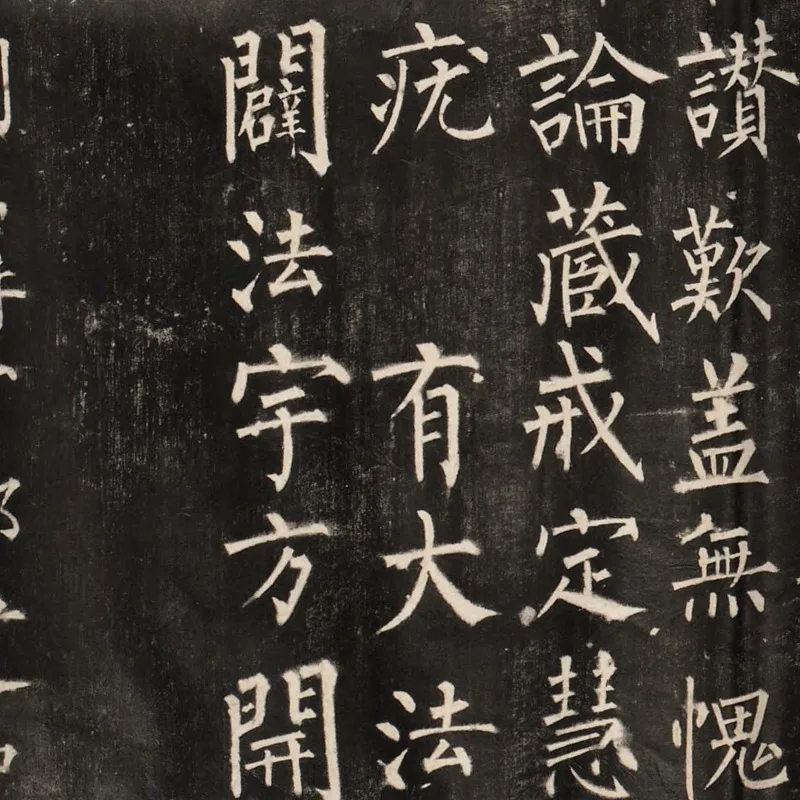 讃歎盖無愧
論蔵戒定慧
疣 有大法
闢法宇方開